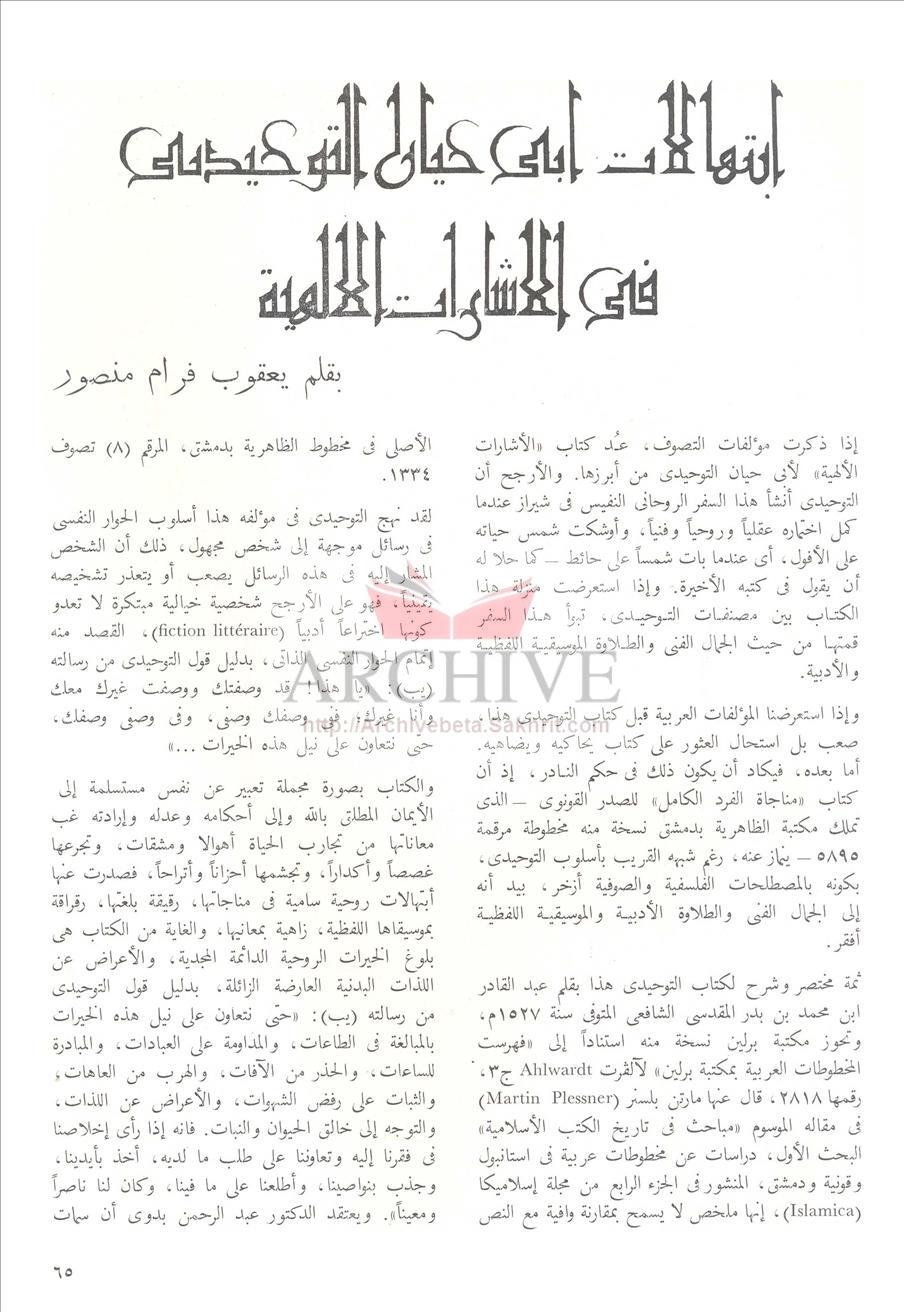 ابتهالات ابي حيان التوحيدي
في الاشارات الالهية
بقلم يعقوب فرام منصور
إذا ذكرت مؤلفات التصوف، عُد كتاب «الأشارات
الألهية» لأبي حيان التوحيدى من أبرزها. والأرجح أن
التوحيدى أنشأ هذا السفر الروحانى النفيس فى شيراز عندما
كمل اختماره عقلياً وروحياً وفنياً، وأوشكت شمس حياته
على الأفول، أى عندما بات شمساً على حائط ــ كما حلا له
أن يقول فى كتبه الأخيرة. وإذا استعرضت منزلة هذا
الكتاب بين مصنفات التوحيدى، تبوأ هذا السفر
قمتها من حيث الجمال الفنى والطلاوة الموسيقية اللفظية
والأدبية.
وإذا استعرضنا المؤلفات العربية قبل كتاب التوحيدى هذا.
صعب بل استحال العثور على كتاب يحاكيه ويضاهيه.
أما بعده، فيكاد أن يكون ذلك فى حكم النادر، إذ أن
كتاب «مناجاة الفرد الكامل» للصدر القونوى ــ الذى
تملك مكتبة الظاهرية بدمشق نسخة منه مخطوطة مرقمة
٥٨٩٥ ــ ينماز عنه، رغم شبهه القريب بأسلوب التوحيدى،
بكونه بالمصطلحات الفلسفية والصوفية أزخر، بيد أنه
إلى الجمال الفنى والطلاوة الأدبية والموسيقية اللفظية
أفقر.
ثمة مختصر وشرح لكتاب التوحيدى هذا بقلم عبد القادر
ابن محمد بن بدر المقدسى الشافعى المتوفى سنة ١٥٢٧م،
وتحوز مكتبة برلين نسخة منه استناداً إلى «فهرست
المخطوطات العربية بمكتبة برلين» لآلڤرت Ahlwardt ج٣،
رقمها ٢٨١٨، قال عنها مارتن بلسنر (Martin Plessner)
فى مقاله الموسوم «مباحث فى تاريخ الكتب الأسلامية»
البحث الأول، دراسات عن مخطوطات عربية فى استانبول
وقونية ودمشق، المنشور فى الجزء الرابع من مجلة إسلاميكا
(Islamica)، إنها ملخص لا يسمح بمقارنة وافية مع النص
الأصلى فى مخطوط الظاهرية بدمشق، المرقم (٨) تصوف
١٣٣٤.
لقد نهج التوحيدى فى مؤلفه هذا أسلوب الحوار النفسى
فى رسائل موجهة إلى شخص مجهول، ذلك أن الشخص
المشار إليه فى هذه الرسائل يصعب أو يتعذر تشخيصه
يقينياً، فهو على الأرجح شخصية خيالية مبتكرة لا تعدو
كونها اختراعاً أدبياً (fiction littéraire)، القصد منه
إتمام الحوار النفسى الذاتى، بدليل قول التوحيدى من رسالته
(يب): «يا هذا! قد وصفتك ووصفت غيرك معك
وأنا غيرك، ففى وصفك وصفى، وفى وصفى وصفك،
حتى نتعاون على نيل هذه الخيرات ...»
والكتاب بصورة مجملة تعبير عن نفس مستسلمة إلى
الأيمان المطلق بالله وإلى أحكامه وعدله وإرادته غب
معاناتها من تجارب الحياة أهوالا ومشقات، وتجرعها
غصصاً وأكداراً، وتجشمها أحزاناً وأتراحاً، فصدرت عنها
أبتهالات روحية سامية فى مناجاتها، رقيقة بلغتها، رقراقة
بموسيقاها اللفظية، زاهية بمعانيها، والغاية من الكتاب هى
بلوغ الخيرات الروحية الدائمة المجدية، والأعراض عن
اللذات البدنية العارضة الزائلة، بدليل قول التوحيدى
من رسالته (يب): «حتى نتعاون على نيل هذه الخيرات
بالمبالغة فى الطاعات، والمداومة على العبادات، والمبادرة
للساعات، والحذر من الآفات، والهرب من العاهات،
والثبات على رفض الشهوات، والأعراض عن اللذات،
والتوجه إلى خالق الحيوان والنبات. فانه إذا رأى إخلاصنا
فى فقرنا إليه وتعاوننا على طلب ما لديه، أخذ بأيدينا،
وجذب بنواصينا، وأطلعنا على ما فينا، وكان لنا ناصراً
ومعيناً». ويعتقد الدكتور عبد الرحمن بدوى أن سمات
٦٥
ARCHIVE
http://Archivebeta.Sakhrit.com